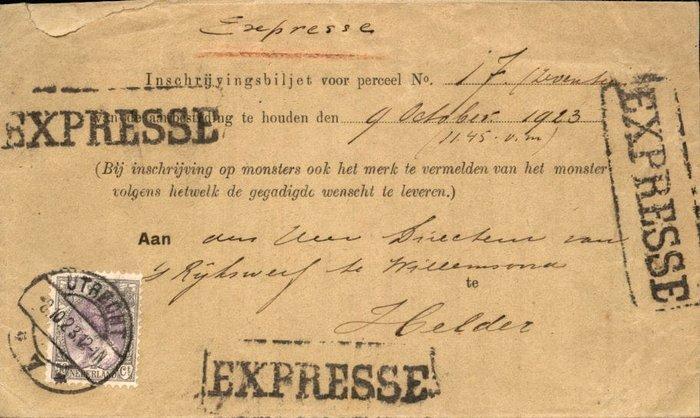 Expresse
Inschrijvingsbiljet voor perceel No. 17 (zeventien
EXPRESSE
van de aanbesteding te houden den 9 October 1923
(11.45 v.m)
EXPRESSE
(Bij inschrijving op monsters ook het merk te vermelden van het monster
volgens hetwelk de gegadigde wenscht te leveren.)
Aan den Heer Directeur van
's Rijkswerf te Willemsoord
te
Helder
UTRECHT
8.10.23.12-1N
NEDERLAND
EXPRESSE